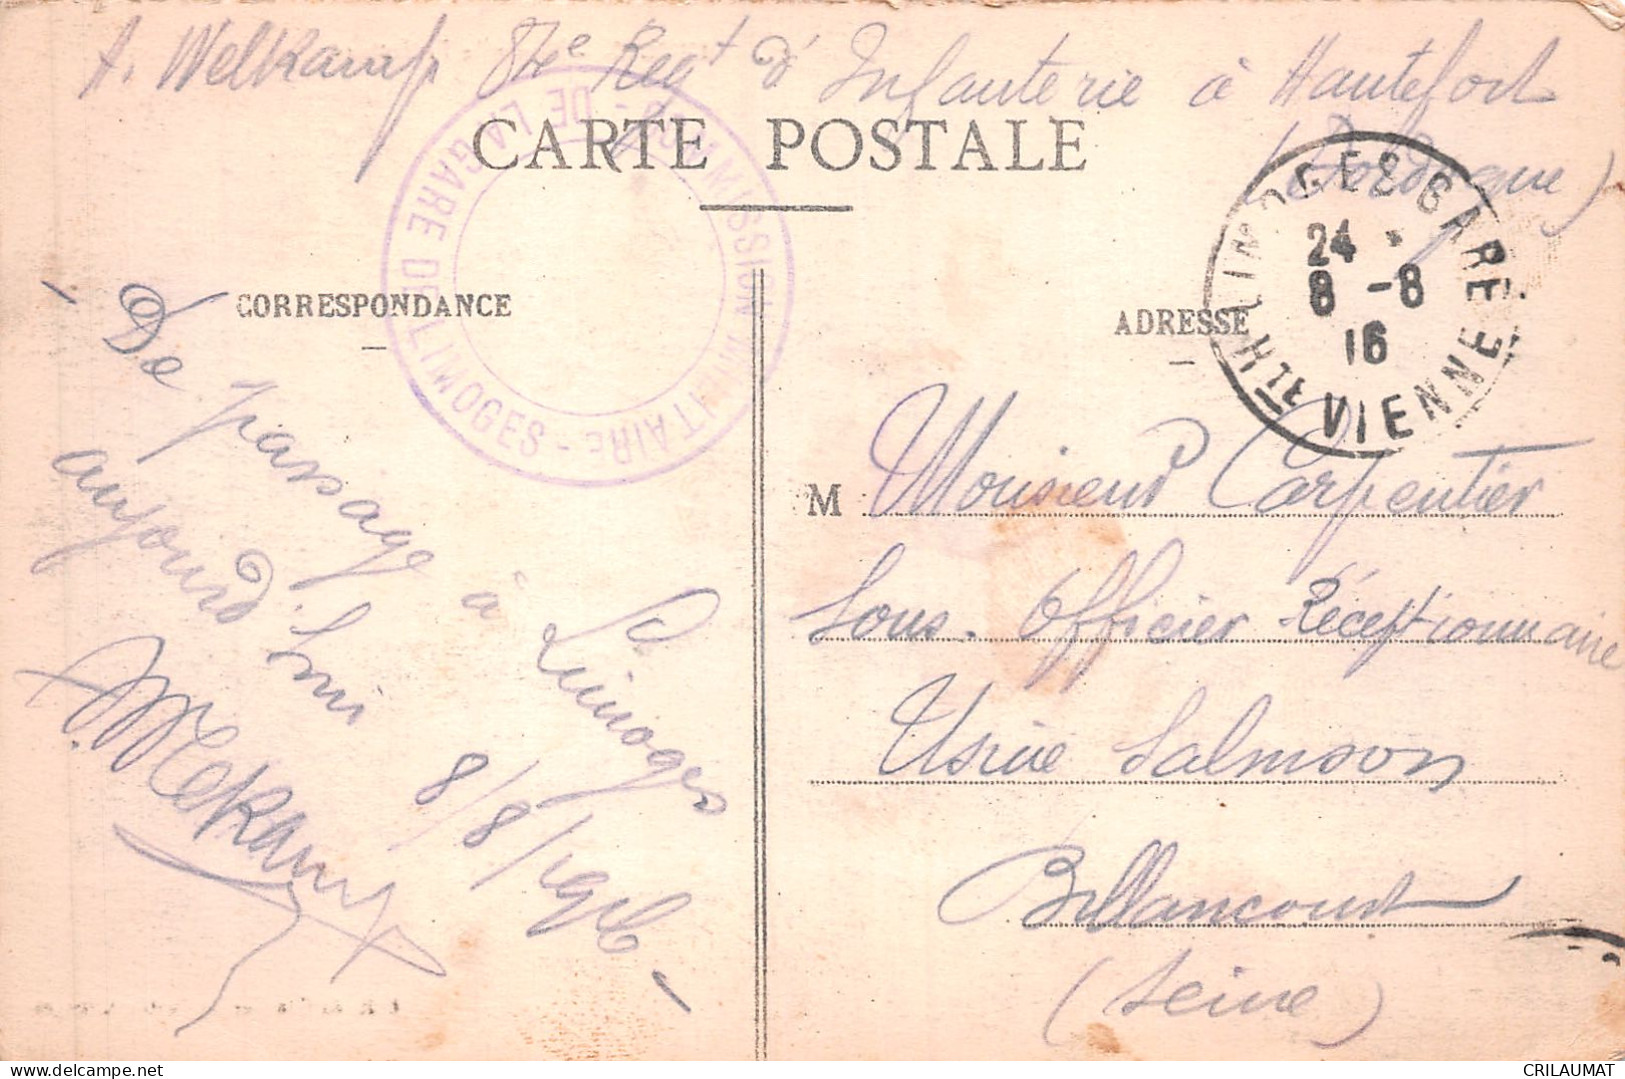 A. Welkamp 84e Regt d'Infanterie à Hautefort
(Dordogne)
CARTE POSTALE
COMMISSION MILITAIRE - DE LA GARE DE LIMOGES -
LIMOGES GARE
24 *
8 - 8
16
Hte VIENNE
CORRESPONDANCE
De passage à Limoges
aujourd'hui 8/8/1916 -
AWelkamp
ADRESSE
M Monsieur Carpentier
Sous. Officier Réceptionnaire
Usine Salmson
Billancourt
(Seine)
CRILAUMAT